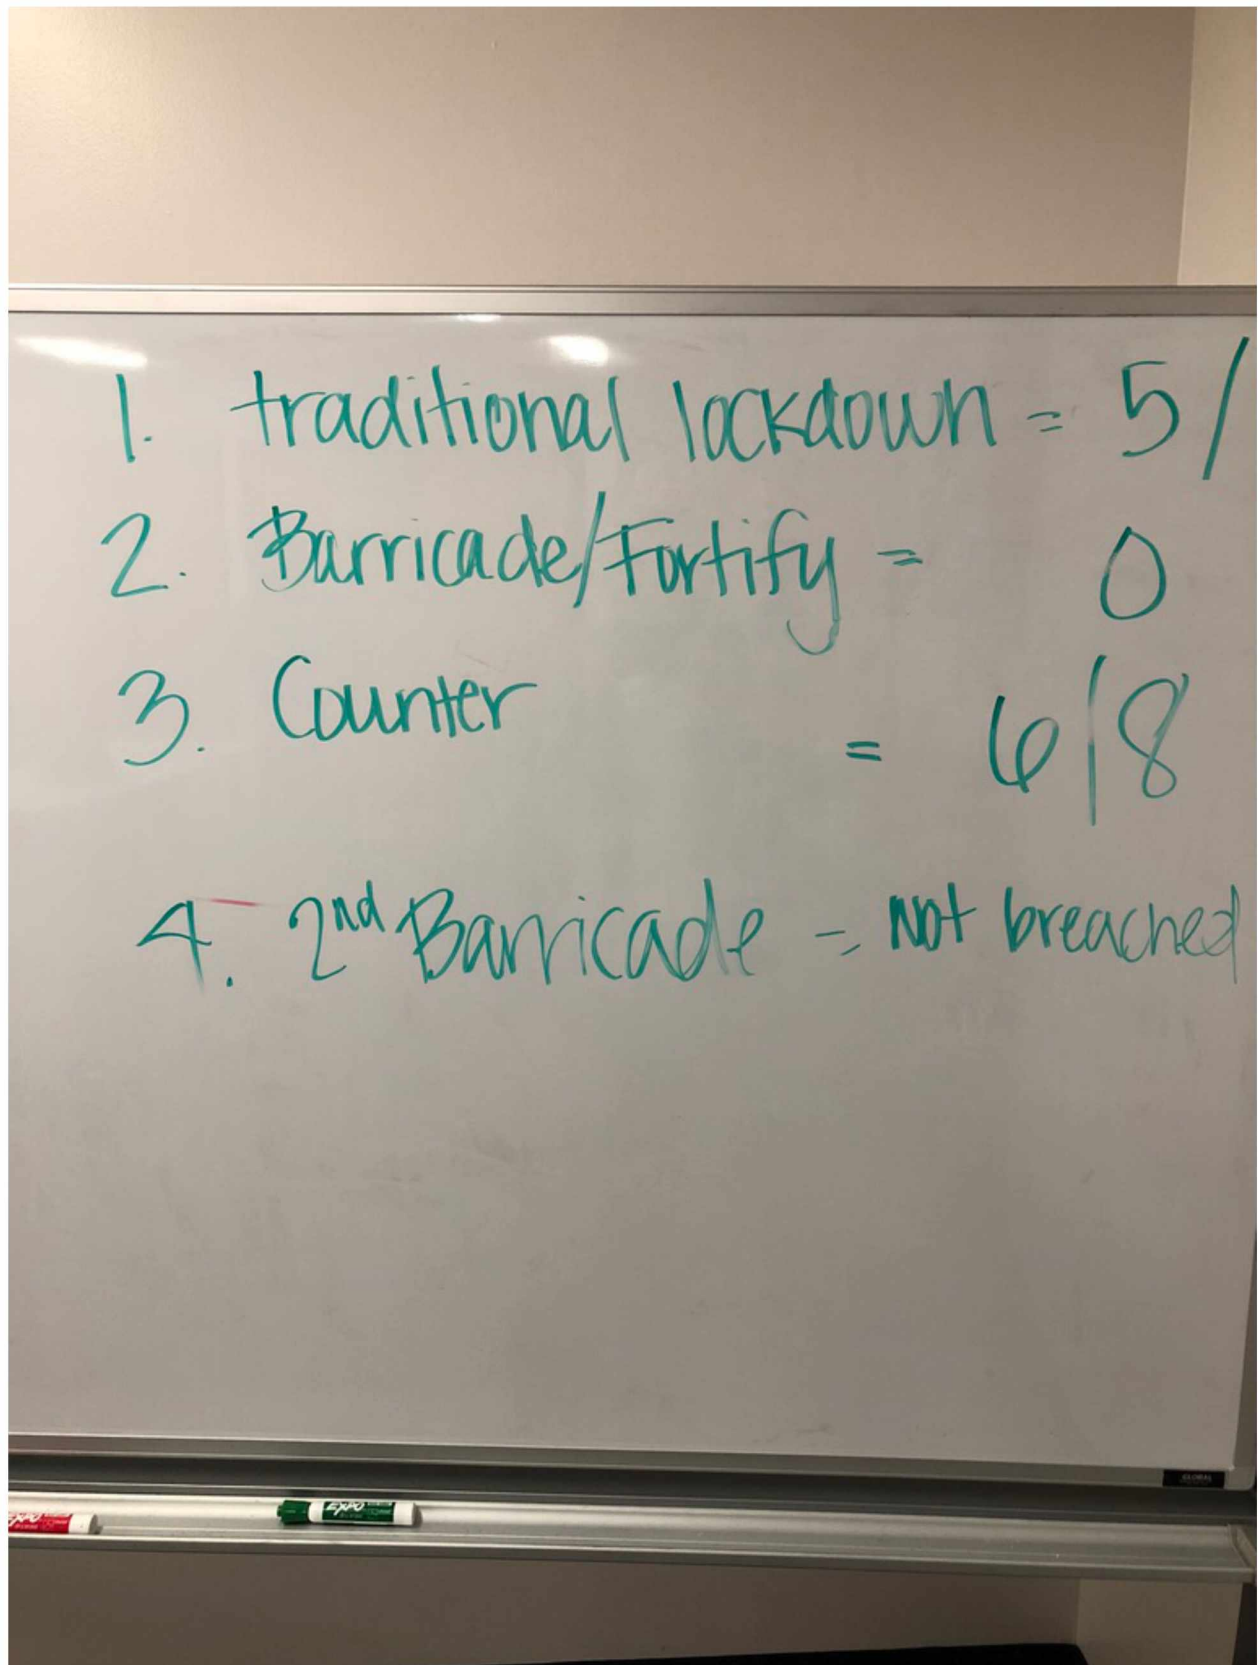 1. traditional lockdown = 5/
2. Barricade/Fortify = 0
3. Counter = 6/8
4. 2nd Barricade = Not breached
GLOBAL
EXPO
EXPO